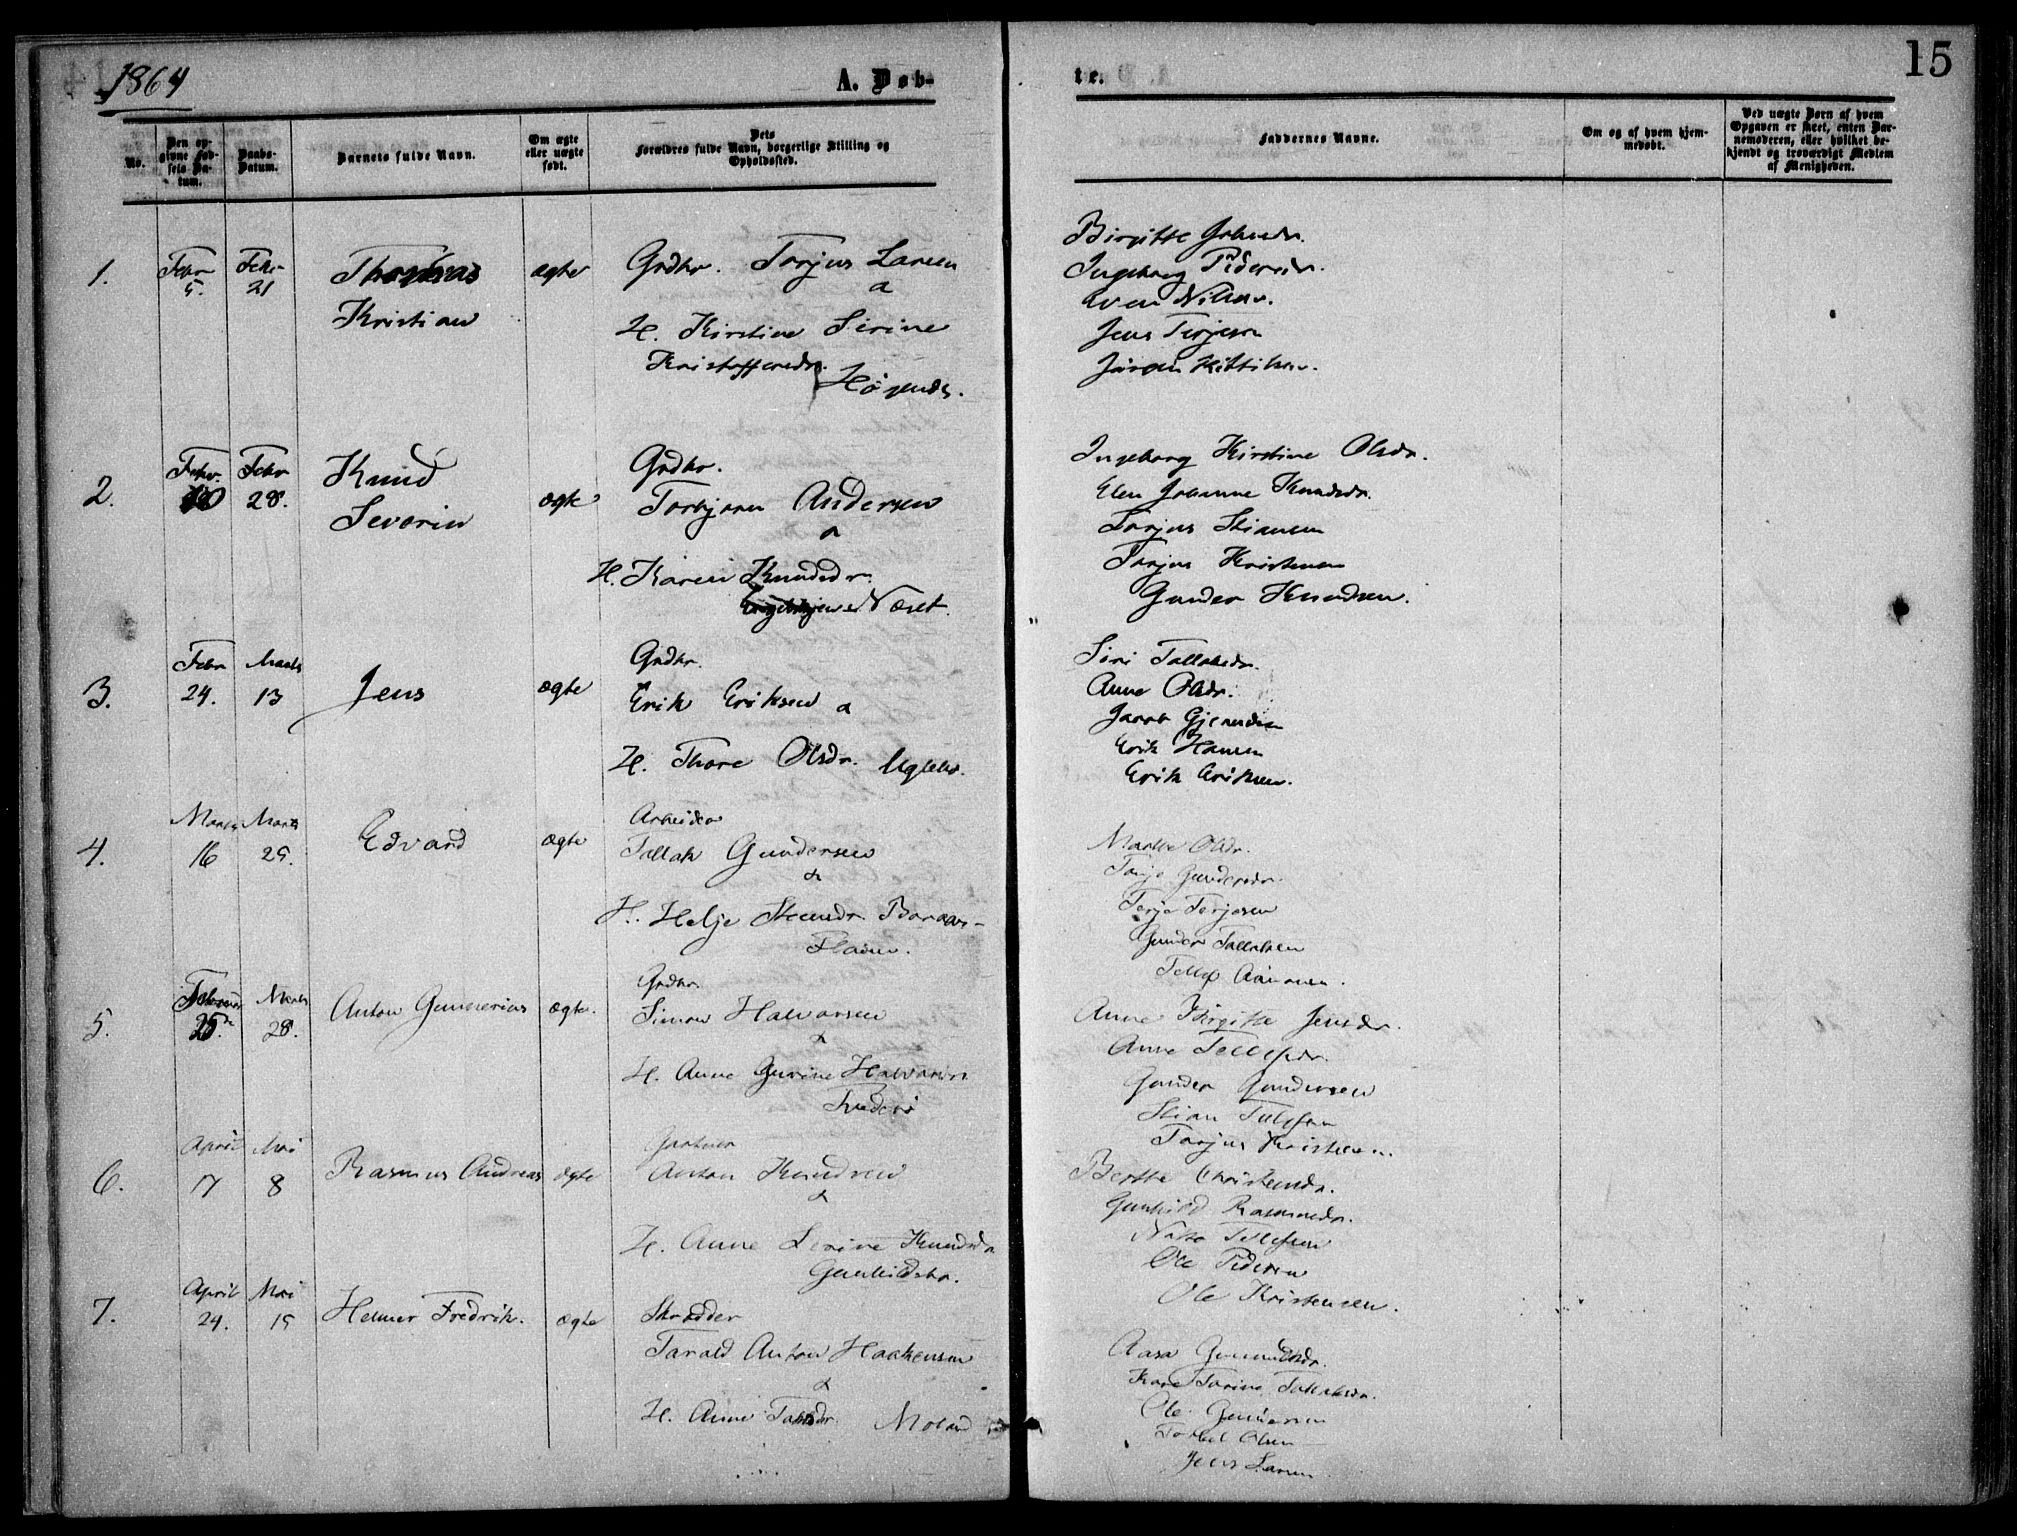 1864
A. Døb-
te.
15
No.
Den op-
givne Fød-
sels Da-
tum.
Daabs-
Datum.
Barnets fulde Navn.
Om ægte
eller uægte
født.
Dets
Forældres fulde Navn, borgerlige Stilling og
Opholdssted.
Faddernes Navne.
Om og af hvem hjem-
medøbt.
Ved uægte Børn af hvem
Opgaven er skeet, enten Bar-
nemoderen, eller hvilket be-
kjendt og troværdigt Medlem
af Menigheden.
1.
Febr
5.
Febr
21
Thomas
Kristian
ægte
Grdbr. Torjus Larsen
a
H. Kirstine Sirine
Kristoffersdr.
Birgitte
Ingeborg Pedersdr.
Even Nilsen.
Jens Terjesen
Jørgen Kittilsen.
2.
Febr.
Febr
28.
Knud
Severin
ægte
Grdbr.
Torbjørn Andersen
a
H. Karen Knudsdr.
Næset.
Ingeborg Kirstine Olsdr.
Elen Johanne Knudsdr.
Torjus Stiansen
Torjus Kristensen
Gunder Knudsen.
3.
Febr
24.
Marts
13
Jens
ægte
Grdbr.
Erik Eriksen a
H. Thore Olsdr. Ugleb.
Siri Tallaksdr.
Anne Olsdr.
Jacob
Erik Hansen
Erik Eriksen.
4.
Marts
16
Marts
25.
Edvard
ægte
Arbeider
Tallak Gundersen
&
H. Helje
Marthe Olsdr.
Gundersdr.
Terje Terjesen
Gunder Tallaksen
Tellef Aanonsen.
5.
Februar
25.
Marts
28.
Anton Gunnerius
ægte.
Grdbr.
Simon Halvorsen
&
H. Anne Gurine Halvorsdr.
Anne Birgitte Jensdr.
Anne Tellefsdr.
Gunder Gundersen
Stian Tellefsen
Torjus Kristensen.
6.
April
17
Mai
8
Rasmus Andreas
ægte
Gartner
Anton Knudsen
&
H. Anne Serine Knudsdr
Berthe Christensdr.
Gunhild Rasmusdr.
Tellefsen
Ole Pedersen
Ole Kristensen.
7.
April
24.
Mai
15
Helmer Fredrik.
ægte
Skrædder
Tarald Anton Haakensen
&
H. Anne
Moland
Aasa Gunnuldsdr.
Kare Torine Tallaksdr.
Ole Gunnersen
Olsen
Jens Larsen